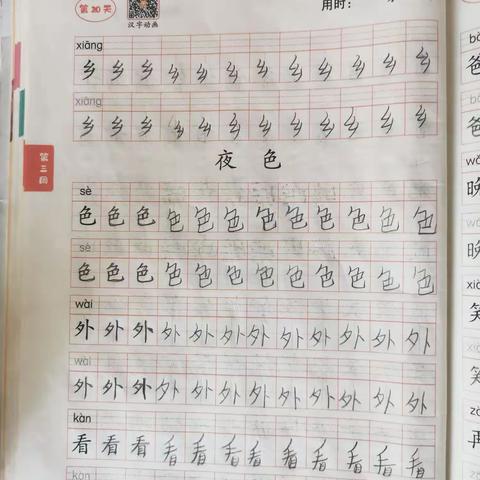 第20天
汉字动画
用时:
xiāng
乡 乡 乡 乡 乡 乡 乡 乡 乡 乡 乡 乡 乡
xiāng
乡 乡 乡 乡 乡 乡 乡 乡 乡 乡 乡 乡 乡
夜 色
第三周
sè
色 色 色 色 色 色 色 色 色 色 色 色 色
sè
色 色 色 色 色 色 色 色 色 色 色 色 色
wài
外 外 外 外 外 外 外 外 外 外 外 外 外
wài
外 外 外 外 外 外 外 外 外 外 外 外 外
kàn
看 看 看 看 看 看 看 看 看 看 看 看
kàn
爸
爸
晚
晚
笑
笑
再